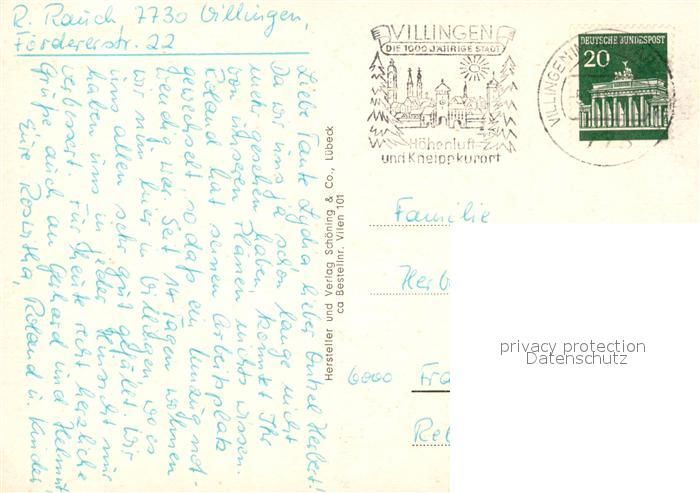 R. Rauch 7730 Villingen,
Fördererstr. 22
Liebe Tante Lydia lieber Onkel Herbert!
Da wir uns ja schon lange nicht
mehr gesehen haben, konnt Ihr
von unseren Plänen nichts wissen.
Roland hat seinen Arbeitsplatz
gewechselt, so daß ein Umzug not-
wendig war. Seit 14 Tagen wohnen
wir nun hier in Villingen, wo es
uns allen sehr gut gefällt. Wir
haben uns in jeder Hinsicht nur
verbessert. Für heute recht herzliche
Grüße auch an Gerhard und Helmut,
Eure Roswitha, Roland u. Kinder
Hersteller und Verlag Schöning & Co., Lübeck
ca Bestellnr. Vilen 101
VILLINGEN
DIE 1000 JÄHRIGE STADT
Höhenluft-
und Kneippkurort
VILLINGEN
DEUTSCHE BUNDESPOST
20
Familie
Herb
6000 Fra
privacy protection
Datenschutz